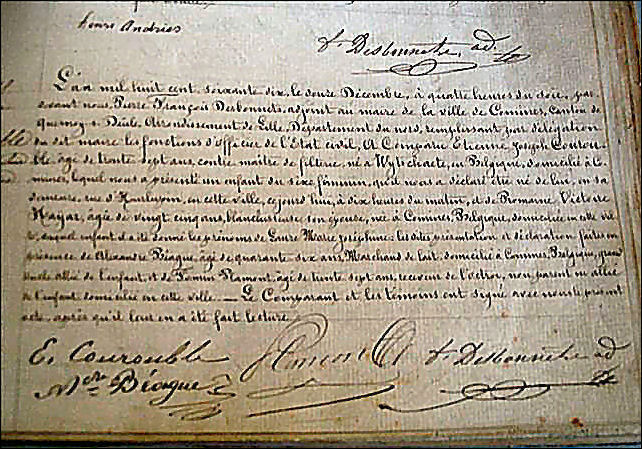 henri Andries
f. Desbonnets, ad.
L'an mil huit cent soixante six, le douze Décembre, à quatre heures du soir, par
devant nous Pierre François Desbonnets, adjoint au maire de la ville de Comines, Canton de
Quesnoy s. Deûle, Arrondissement de Lille, Département du nord, remplissant par délégation
du dit maire les fonctions d'officier de l'Etat civil, A Comparu Etienne Joseph Courou-
ble, âgé de trente sept ans, contre maître de filterie, né à Wytschaete, en Belgique, domicilié à Co-
mines, lequel nous a présenté un enfant du sexe féminin, qu'il nous a déclaré être né de lui, en sa
demeure, rue d'Hurlupin, en cette ville, ce jour d'hui, à six heures du matin, et de Romaine Victoire
âgée de vingt cinq ans, blanchisseuse son épouse, née à Comines, Belgique, domiciliée en cette vil-
le, auquel enfant il a été donné les prénoms de Laure Marie Joséphine; les dites présentation et déclaration faites en
présence de Alexandre Béague, âgé de quarante six ans, Marchand de lait, domicilié à Comines, Belgique, grand
oncle allié de l'enfant, et de Firmin Flamont, âgé de trente sept ans, receveur de l'octroi, non parent ni allié
de l'enfant, domicilié en cette ville. — Le Comparant et les témoins ont signé avec nous le présent
acte, après qu'il leur en a été fait lecture.
E. Courouble
f. Desbonnets ad
Béague